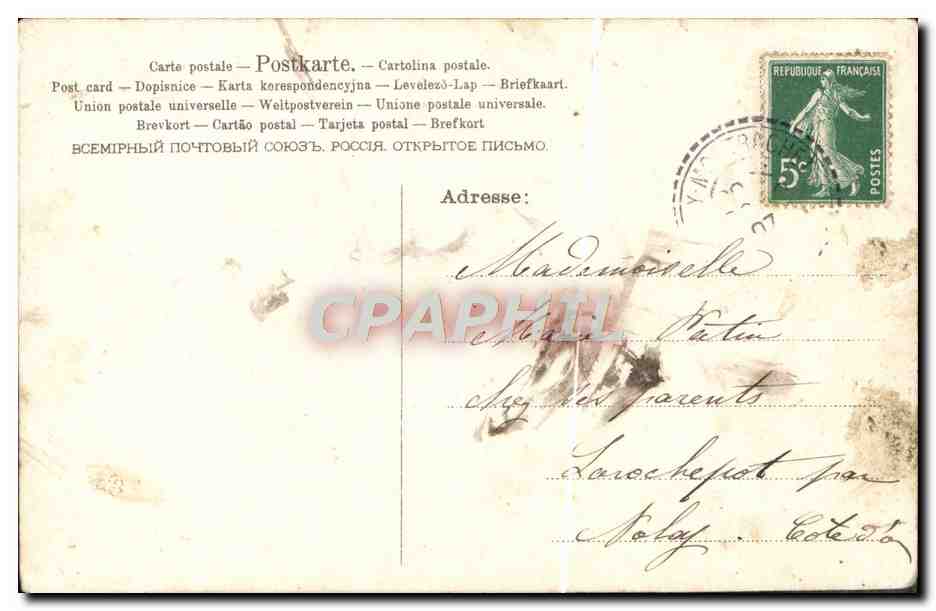 Carte postale — Postkarte. — Cartolina postale.
Post card — Dopisnice — Karta korespondencyjna — Levelező-Lap — Briefkaart.
Union postale universelle — Weltpostverein — Unione postale universale.
Brevkort — Cartão postal — Tarjeta postal — Brefkort
ВСЕМІРНЫЙ ПОЧТОВЫЙ СОЮЗЪ. РОССІЯ. ОТКРЫТОЕ ПИСЬМО.
REPUBLIQUE FRANÇAISE
5c
POSTES
07
Adresse:
Mademoiselle
CPAPHIL
Marie Vatin
chez ses parents
Larochepot par
Nolay. Cote d'or